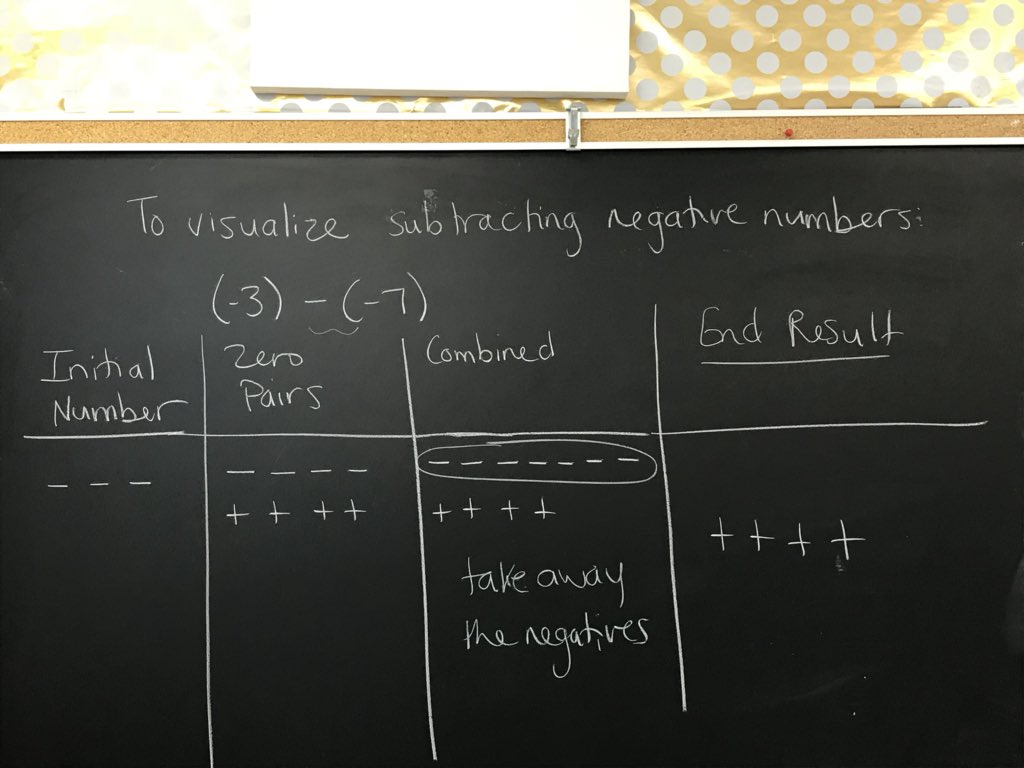 To visualize subtracting negative numbers:
(-3) - (-7)
Initial
Number
Zero
Pairs
Combined
End Result
- - -
- - - -
+ + + +
- - - - - - -
+ + + +
take away
the negatives
+ + + +